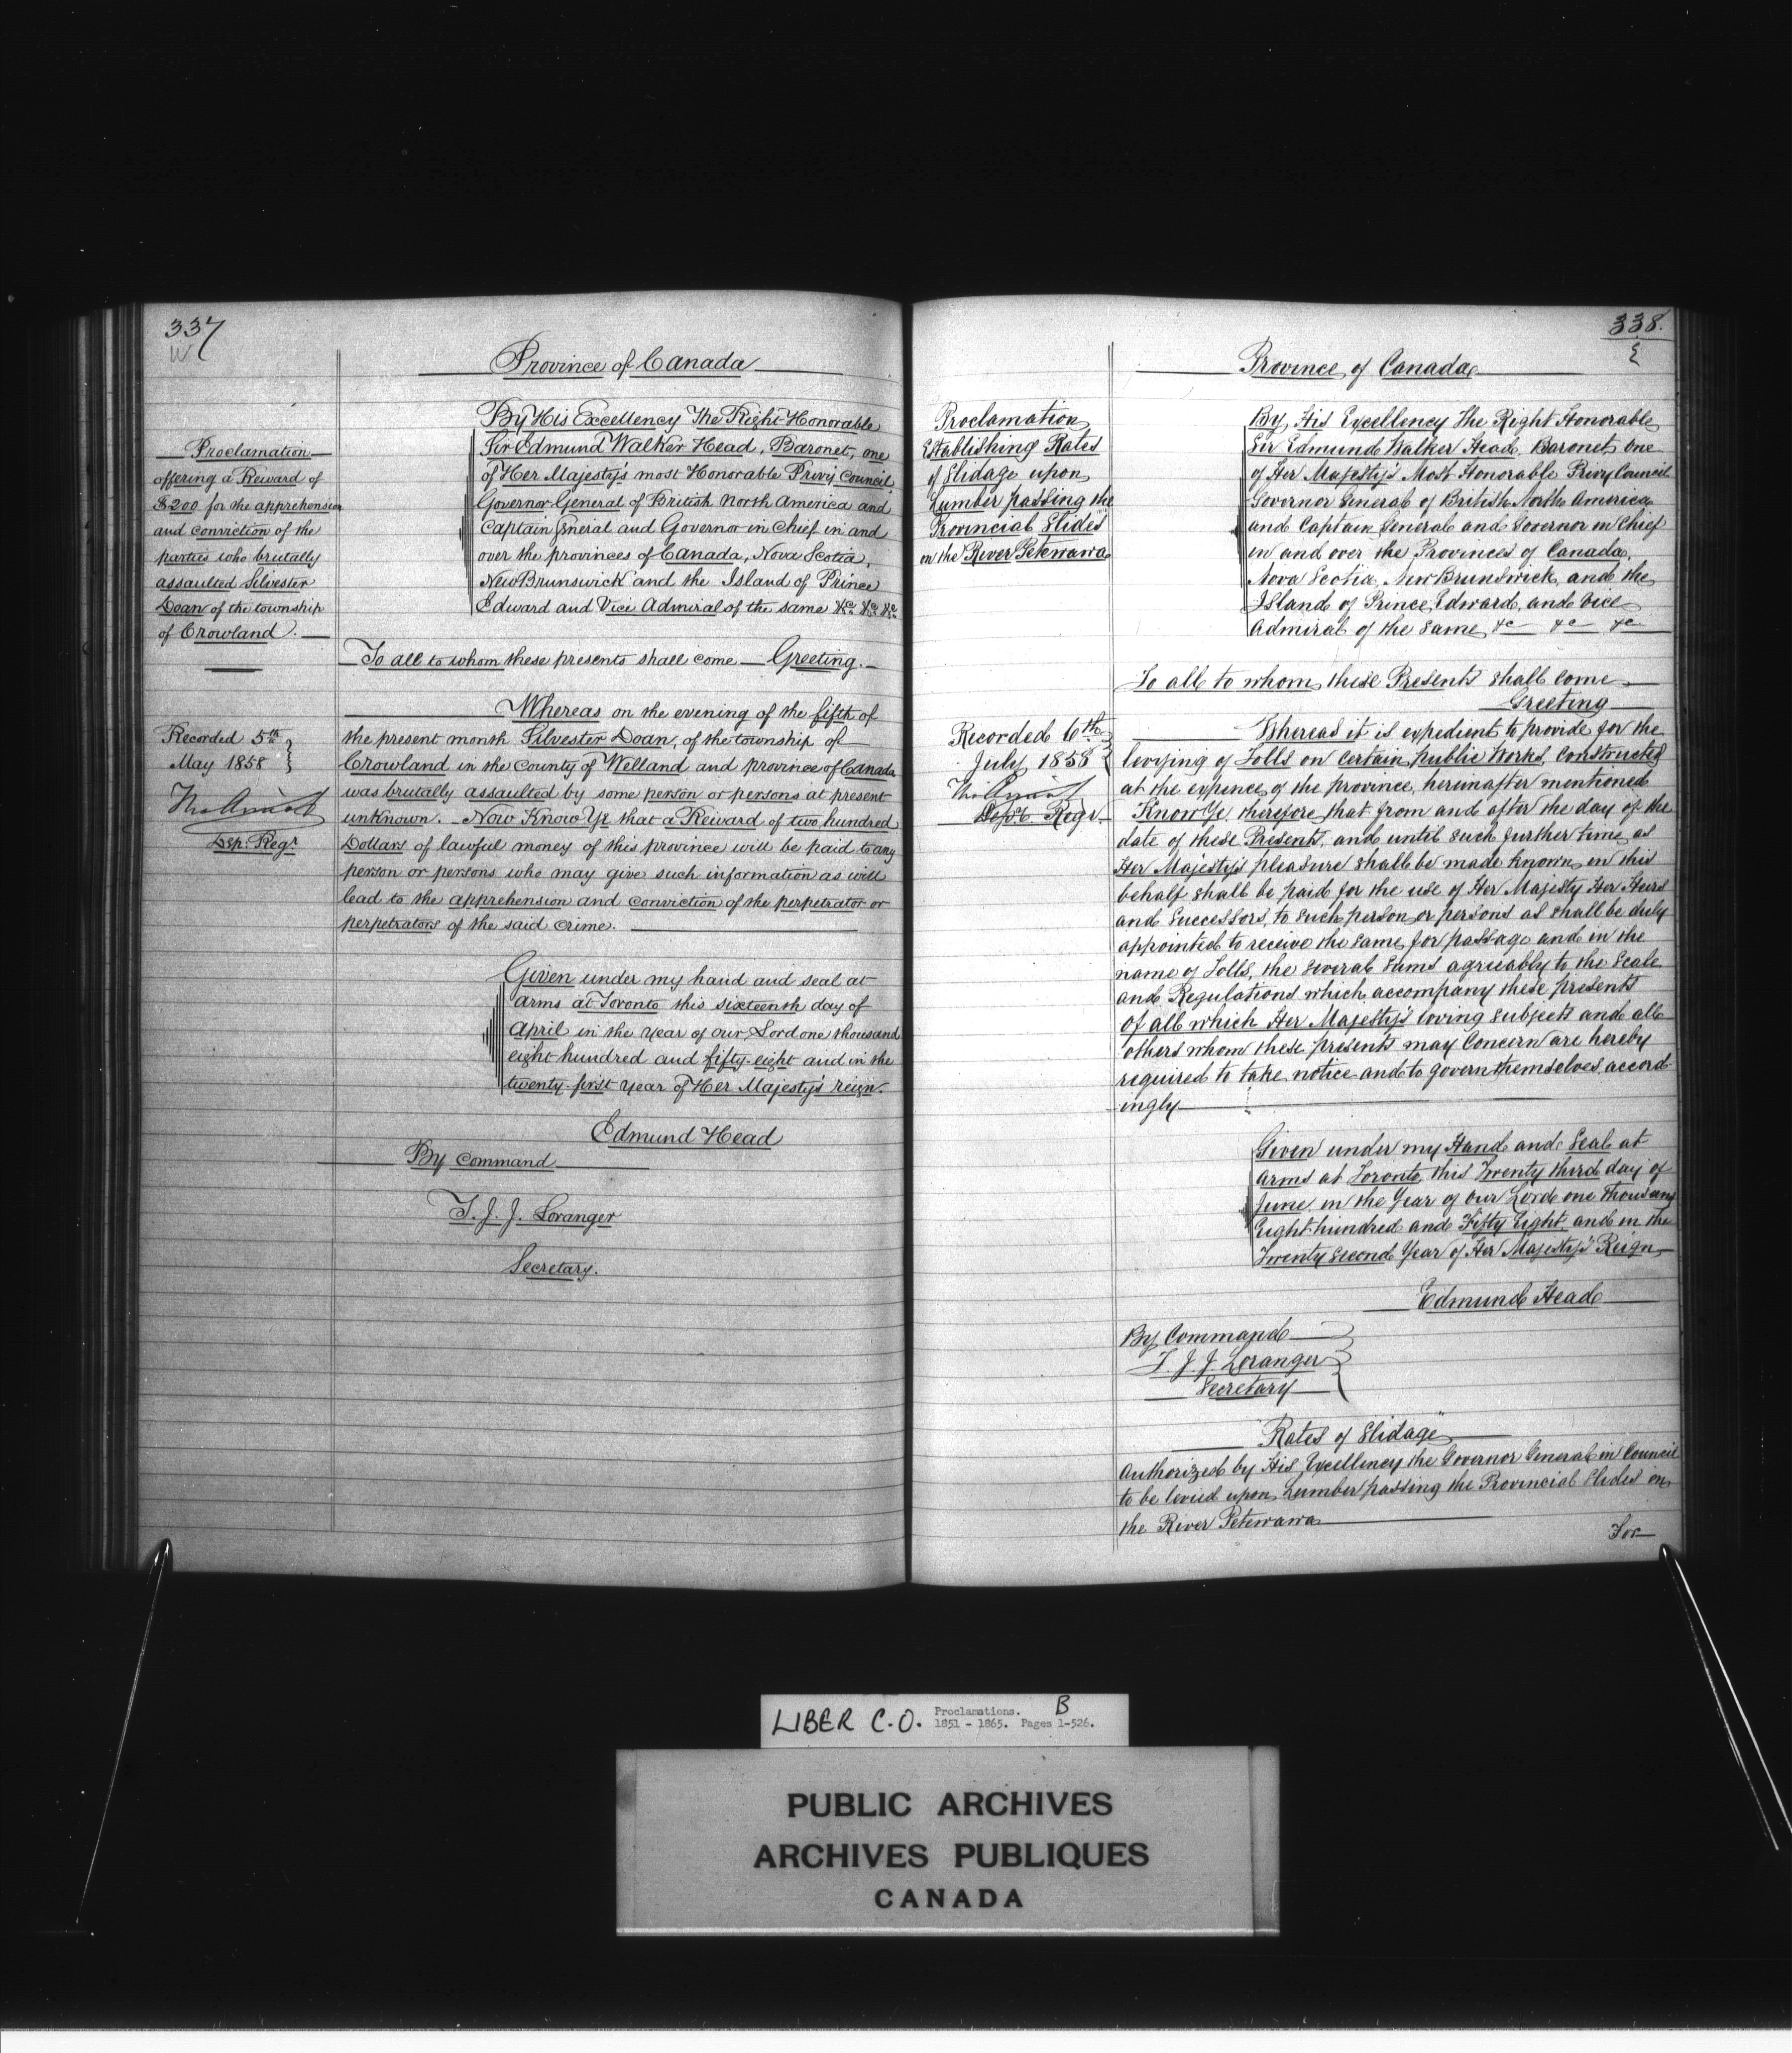 337
Province of Canada
Proclamation
offering a Reward of
$200 for the apprehension
and conviction of the
parties who brutally
assaulted Silvester
Doan of the township
of Crowland.
By His Excellency The Right Honorable
Sir Edmund Walker Head, Baronet, one
of Her Majesty's most Honorable Privy Council,
Governor General of British North America and
Captain General and Governor in Chief in and
over the provinces of Canada, Nova Scotia,
New Brunswick and the Island of Prince
Edward and Vice Admiral of the same &c &c &c
To all to whom these presents shall come Greeting.
Recorded 5th
May 1858
Dep. Regr
Whereas on the evening of the fifth of
the present month Silvester Doan, of the township of
Crowland in the County of Welland and province of Canada
was brutally assaulted by some person or persons at present
unknown. Now Know Ye that a Reward of two hundred
Dollars of lawful money of this province will be paid to any
person or persons who may give such information as will
lead to the apprehension and conviction of the perpetrator or
perpetrators of the said crime.
Given under my hand and seal at
arms at Toronto this sixteenth day of
April in the year of our Lord one thousand
eight hundred and fifty-eight and in the
twenty-first year of Her Majesty's reign.
Edmund Head
By command
T. J. J. Loranger
Secretary.
338.
Province of Canada
Proclamation
Establishing Rates
of Slidage upon
Lumber passing the
"Provincial Slides"
on the River Petewawa
By His Excellency The Right Honorable
Sir Edmund Walker Head, Baronet, One
of Her Majesty's Most Honorable Privy Council
Governor General of British North America
and Captain General and Governor in Chief
in and over the Provinces of Canada,
Nova Scotia, New Brunswick, and the
Island of Prince Edward, and Vice
Admiral of the same &c &c &c
To all to whom these Presents shall come
Greeting
Recorded 6th
July 1858
Dept. Regr.
Whereas it is expedient to provide for the
levying of Tolls on certain public Works, constructed
at the expence of the province, hereinafter mentioned
Know Ye therefore that from and after the day of the
date of these Presents, and until such further time, as
Her Majesty's pleasure shall be made known in this
behalf shall be paid for the use of Her Majesty Her Heirs
and Successors, to such person or persons as shall be duly
appointed to receive the same, for passage and in the
name of Tolls, the several sums agreeably to the Scale
and Regulations which accompany these presents
of all which Her Majesty's loving subjects and all
others whom these presents may Concern are hereby
required to take notice and to govern themselves accord
ingly
Given under my Hand and Seal at
Arms at Toronto, this Twenty third day of
June in the Year of our Lord one Thousand
Eight hundred and Fifty Eight, and in the
Twenty second Year of Her Majesty's Reign
Edmund Head
By Command
T. J. J. Loranger
Secretary
"Rates of Slidage"
Authorized by His Excellency the Governor General in Council
to be levied upon Lumber passing the Provincial Slides on
the River Petewawa
For
LIBER C.O. Proclamations. B
1851 - 1865. Pages 1-526.
PUBLIC ARCHIVES
ARCHIVES PUBLIQUES
CANADA